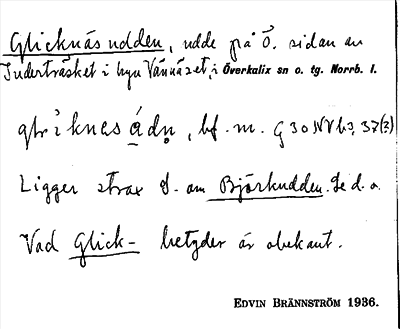 Glicknäsudden, udde på Ö. sidan av
Juderträsket i byn Vännäset, i Överkalix sn o. tg. Norrb. l.
bf. m. G 30 NV b3, 37(2)
Ligger strax S. om Björkudden. Se d. o.
Vad Glick- betyder är obekant.
EDVIN BRÄNNSTRÖM 1936.